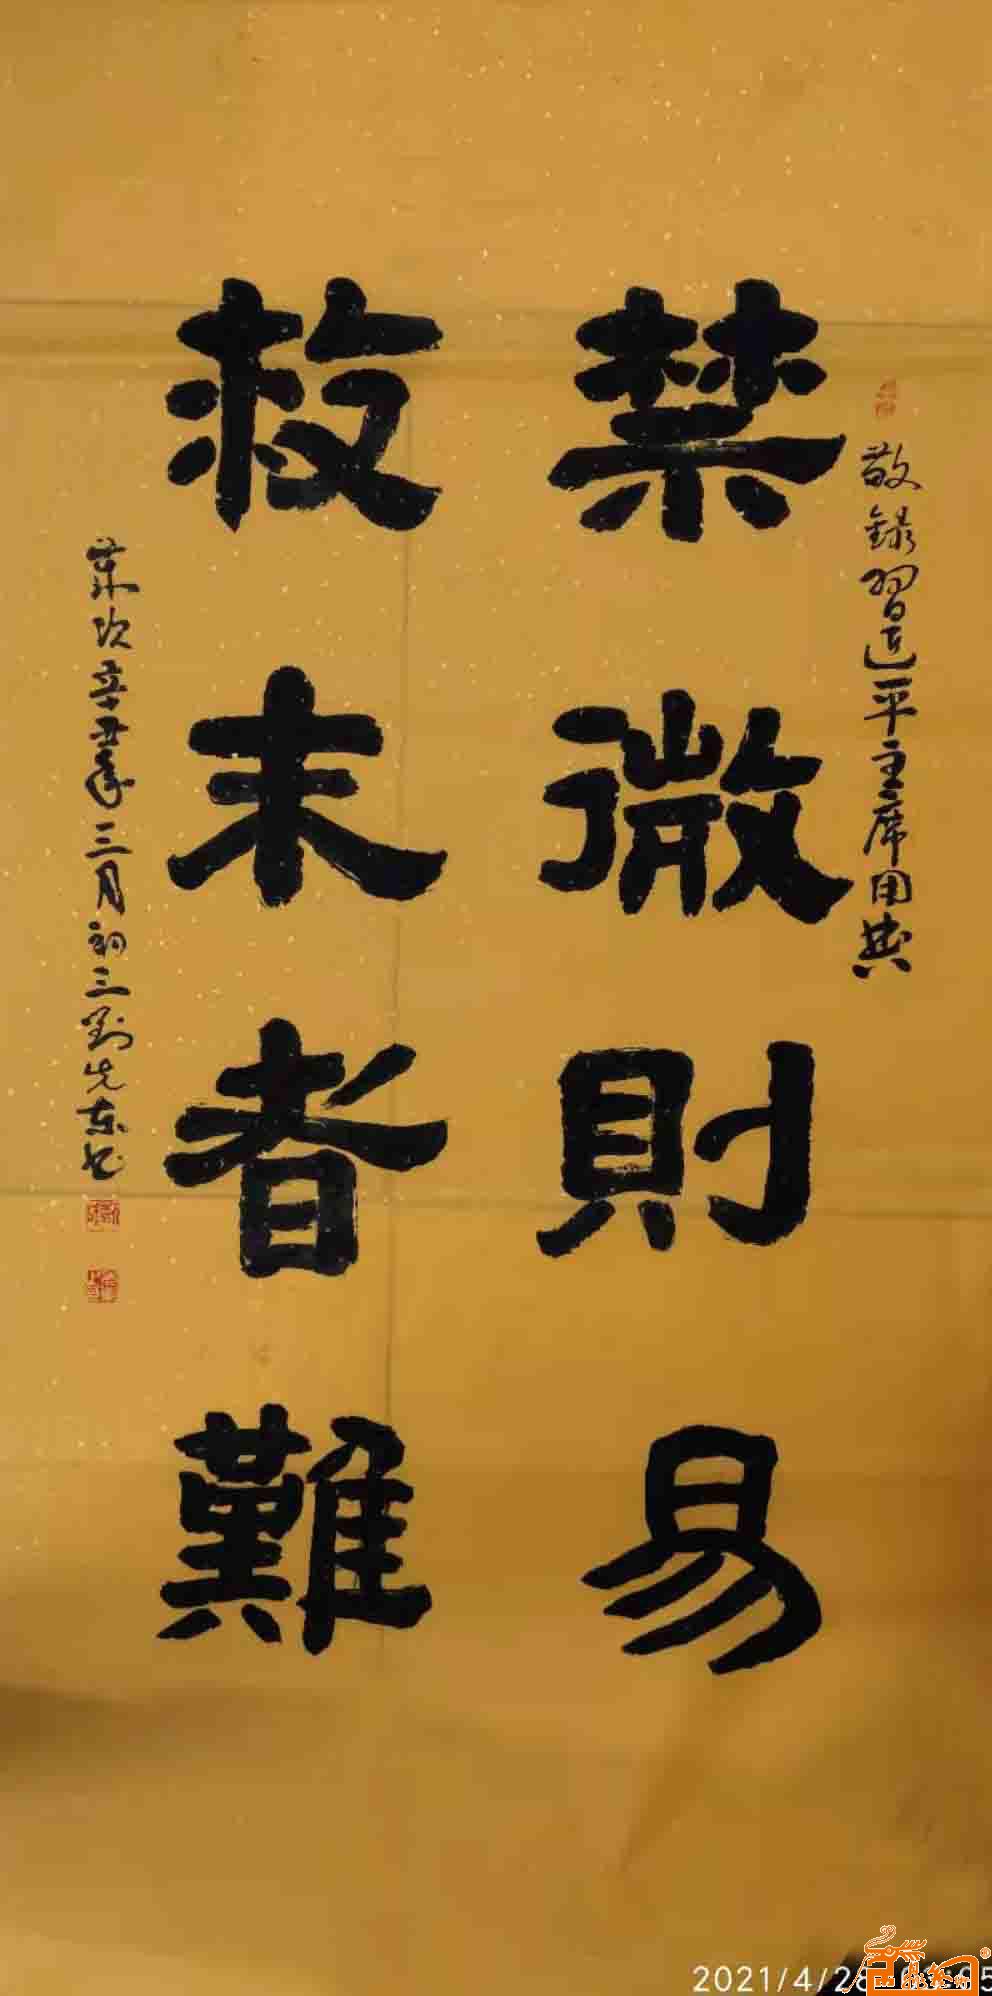 敬録習近平主席用典
禁微則易
救末者難
歲次辛丑年三月初三劉先東書
2021/4/28